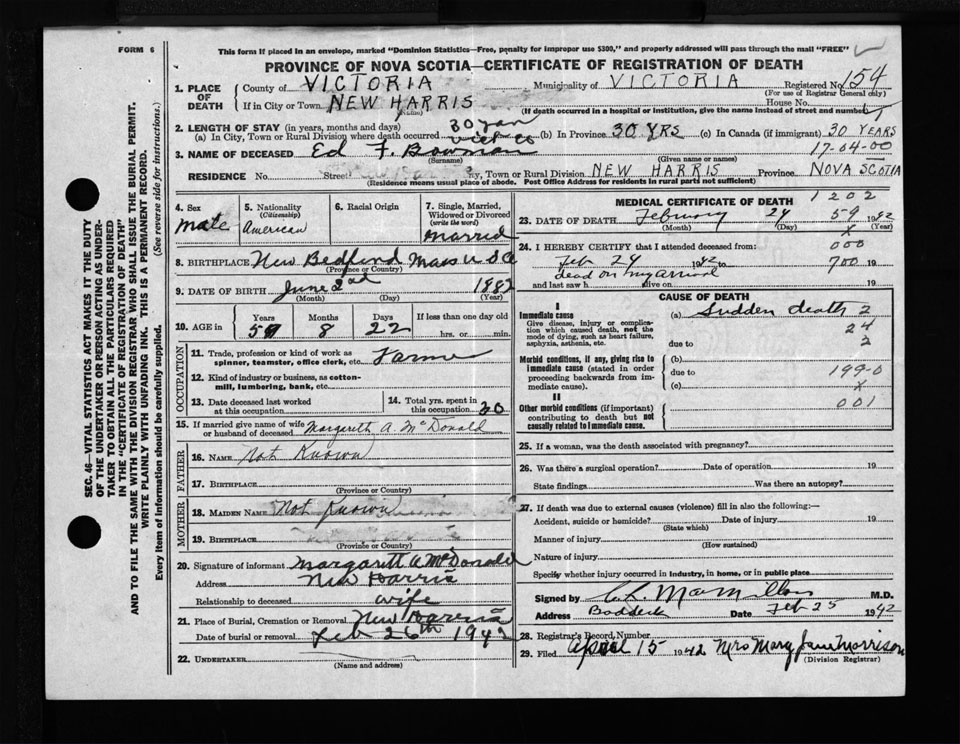 FORM 6
This form if placed in an envelope, marked "Dominion Statistics—Free, penalty for improper use $300," and properly addressed will pass through the mail "FREE"
PROVINCE OF NOVA SCOTIA—CERTIFICATE OF REGISTRATION OF DEATH
1. PLACE OF DEATH
County of VICTORIA Municipality of VICTORIA Registered No. 154
(For use of Registrar General only)
If in City or Town NEW HARRIS House No.
(If death occurred in a hospital or institution, give the name instead of street and number)
2. LENGTH OF STAY (in years, months and days)
(a) In City, Town or Rural Division where death occurred 30 years Vict Co (b) In Province 30 YRS (c) In Canada (if immigrant) 30 YEARS
3. NAME OF DECEASED Ed F. Bowman 17-04-00
(Surname) (Given name or names)
RESIDENCE No. Street City, Town or Rural Division NEW HARRIS Province NOVA SCOTIA
(Residence means usual place of abode. Post Office Address for residents in rural parts not sufficient)
4. Sex male
5. Nationality (Citizenship) American
6. Racial Origin
7. Single, Married, Widowed or Divorced (write the word) Married
8. BIRTHPLACE New Bedford Mass U S A
(Province or Country)
9. DATE OF BIRTH June 2nd 1882
(Month) (Day) (Year)
10. AGE in Years Months Days If less than one day old
59 8 22 hrs. or min.
OCCUPATION
11. Trade, profession or kind of work as spinner, teamster, office clerk, etc. Farmer
12. Kind of industry or business, as cotton-mill, lumbering, bank, etc.
13. Date deceased last worked at this occupation
14. Total yrs. spent in this occupation 30
15. If married give name of wife or husband of deceased Margareth A. McDonald
FATHER
16. NAME Not Known
17. BIRTHPLACE
(Province or Country)
MOTHER
18. MAIDEN NAME Not Known
19. BIRTHPLACE
(Province or Country)
20. Signature of informant Margareth A McDonald
Address New Harris
Relationship to deceased wife
21. Place of Burial, Cremation or Removal New Harris
Date of burial or removal Feb 26th 1942
22. UNDERTAKER
(Name and address)
MEDICAL CERTIFICATE OF DEATH
1202
23. DATE OF DEATH February 24 59 1942
(Month) (Day) (Year)
X
24. I HEREBY CERTIFY that I attended deceased from: 000
Feb 24 1942 to 700 19
dead on my arrival
and last saw h alive on 19
CAUSE OF DEATH
I
Immediate cause
Give disease, injury or complication which caused death, not the mode of dying, such as heart failure, asphyxia, asthenia, etc.
(a) Sudden death 2
24
due to 3
Morbid conditions, if any, giving rise to immediate cause (stated in order proceeding backwards from immediate cause).
(b)
due to 199-0
(c) X
II
Other morbid conditions (if important) contributing to death but not causally related to immediate cause.
001
25. If a woman, was the death associated with pregnancy?
26. Was there a surgical operation? Date of operation 19
State findings Was there an autopsy?
27. If death was due to external causes (violence) fill in also the following:—
Accident, suicide or homicide? Date of injury 19
(State which)
Manner of injury
(How sustained)
Nature of injury
Specify whether injury occurred in industry, in home, or in public place
Signed by C. L. MacMillan M.D.
Address Baddeck Date Feb 25 1942
28. Registrar's Record Number
29. Filed April 15 1942 Mrs Mary Jane Morrison
(Division Registrar)
SEC. 46—VITAL STATISTICS ACT MAKES IT THE DUTY OF THE UNDERTAKER OR PERSON ACTING AS UNDERTAKER TO OBTAIN ALL THE PARTICULARS REQUIRED IN THE "CERTIFICATE OF REGISTRATION OF DEATH" AND TO FILE THE SAME WITH THE DIVISION REGISTRAR WHO SHALL ISSUE THE BURIAL PERMIT.
WRITE PLAINLY WITH UNFADING INK. THIS IS A PERMANENT RECORD.
Every item of information should be carefully supplied. (See reverse side for instructions.)